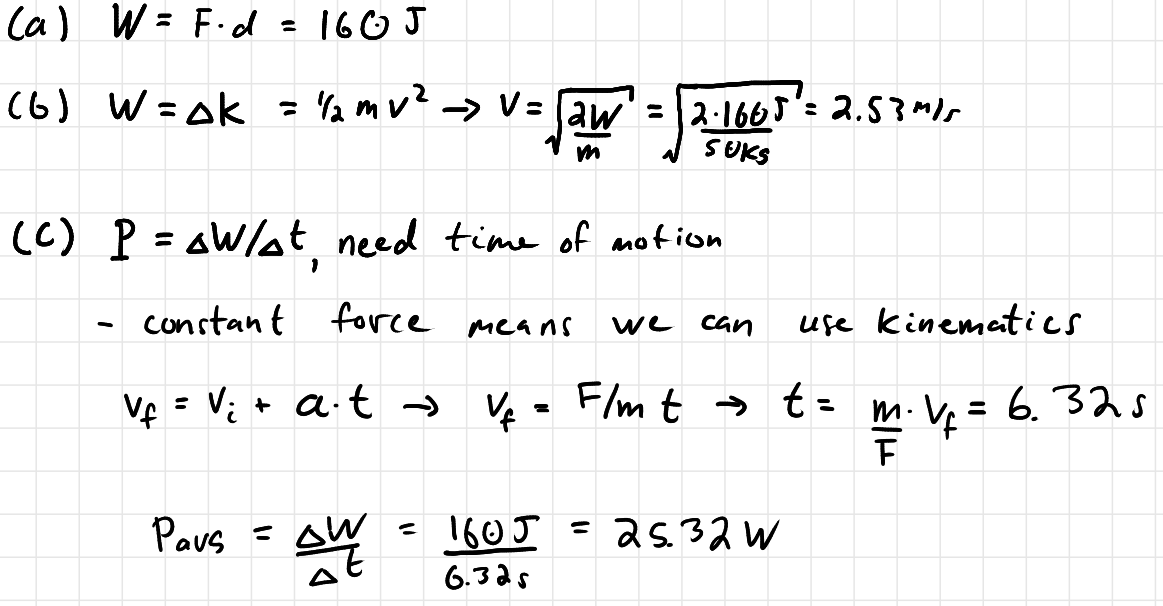 (a) W = F·d = 160 J
(b) W = Δk = 1/2 m v² → V = √(2W/m) = √(2·160J/50kg) = 2.53 m/s
(c) P = ΔW/Δt, need time of motion
- constant force means we can use kinematics
v_f = v_i + a·t → v_f = F/m t → t = m/F · v_f = 6.32 s
P_avg = ΔW/Δt = 160J/6.32s = 25.32 W